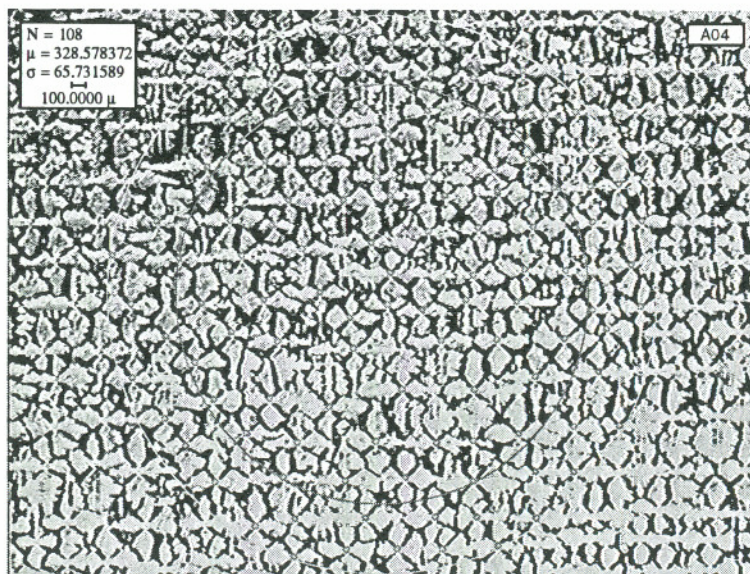 N = 108
μ = 328.578372
σ = 65.731589
100.0000 μ
A04